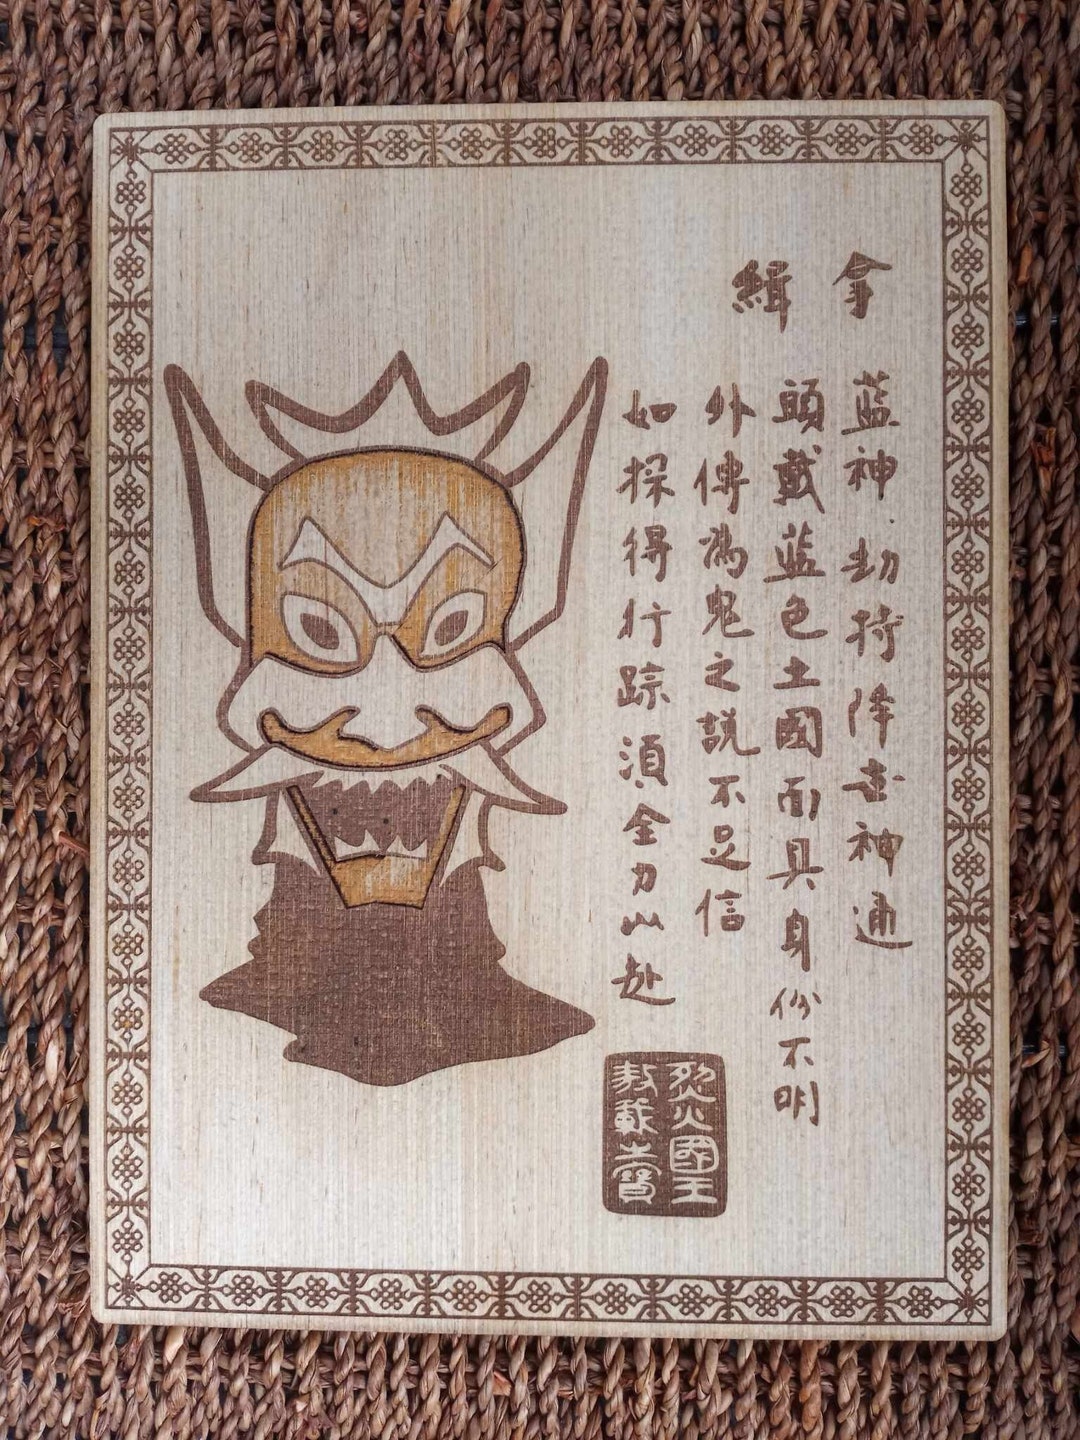 緝拿
蓝神劫持降世神通
頭戴蓝色土國面具身份不明
外傳為鬼之說不足信
如探得行踪須全力以赴
烈火國王
之寶